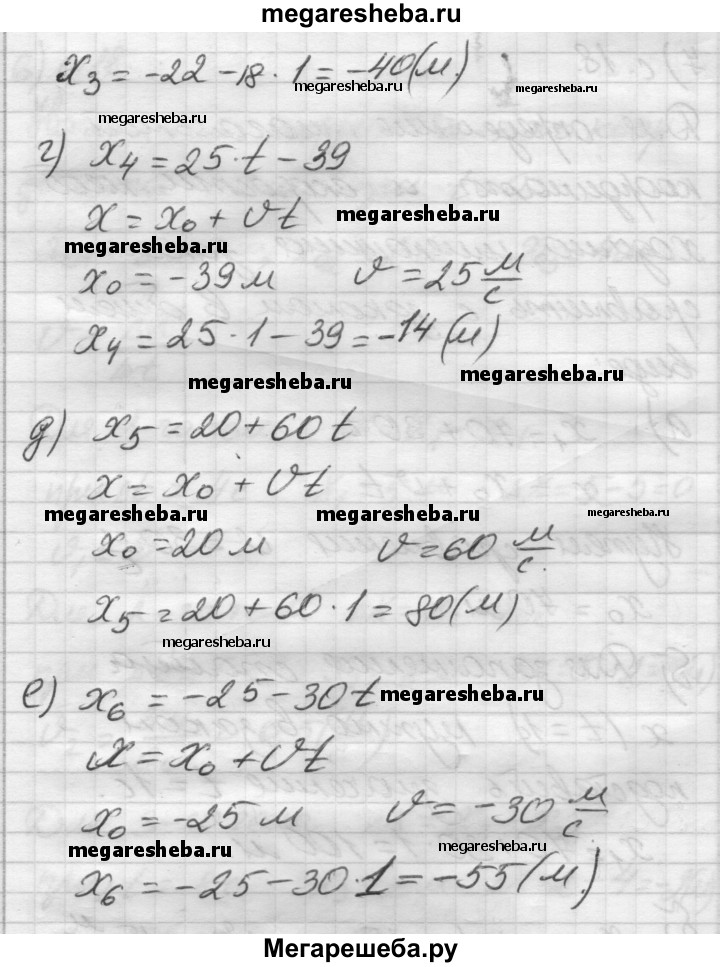 megaresheba.ru
x₃ = -22 - 18 · 1 = -40 (м.)
megaresheba.ru megaresheba.ru
megaresheba.ru
г) x₄ = 25 · t - 39
x = x₀ + υt megaresheba.ru
megaresheba.ru
x₀ = -39 м υ = 25 м/с
x₄ = 25 · 1 - 39 = -14 (м)
megaresheba.ru megaresheba.ru
д) x₅ = 20 + 60 t
x = x₀ + υt
megaresheba.ru megaresheba.ru megaresheba.ru
x₀ = 20 м υ = 60 м/с.
x₅ = 20 + 60 · 1 = 80 (м)
megaresheba.ru
е) x₆ = -25 - 30t megaresheba.ru
x = x₀ + υt
x₀ = -25 м υ = -30 м/с
megaresheba.ru megaresheba.ru
x₆ = -25 - 30 · 1 = -55 (м.)
megaresheba.ru megaresheba.ru
Мегарешеба.ру